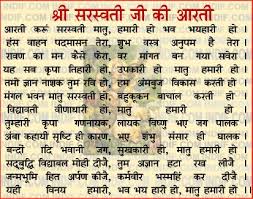 श्री सरस्वती जी की आरती
आरती करूं सरस्वती मातु, हमारी हो भव भयहारी हो।
हंस वाहन पदमासन तेरा, शुभ वस्त्र अनुपम है तेरा।
रावण का मन कैसे फेरा, वर मांगत वन गया सवेरा।
यह सब कृपा तिहारी हो, उपकारी हो मातु हमारी हो।
तमो ज्ञान नाशक तुम रवि हो, हम अम्बुजन विकास करती हो।
मंगल भवन मातु सरस्वती हो, बहुकूकन बाचाल करती हो।
विद्यावती वीणाधारी हो, मातु हमारी हो।
तुम्हारी कृपा गणनायक, लायक विष्णु भए जग पालक
अंबा कहायी सृष्टि ही कारण, भए शंभु संसार ही घालक
बन्दों यदि भवानी जग, सुखकारी हो, मातु हमारी हो।
सद्बुद्धि विद्याबल मोही दीजै, तुम अज्ञान हटा रख लीजै
जन्मभूमि हित अर्पण कीजै, कर्मवीर भस्महिं कर दीजै
यही विनय हमारी, भव भय हारी हो, मातु हमारी हो।